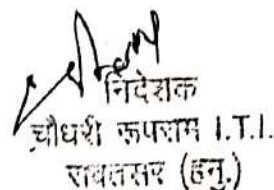 निदेशक
चौधरी रूपराम I.T.I.
रावतसर (हनु.)